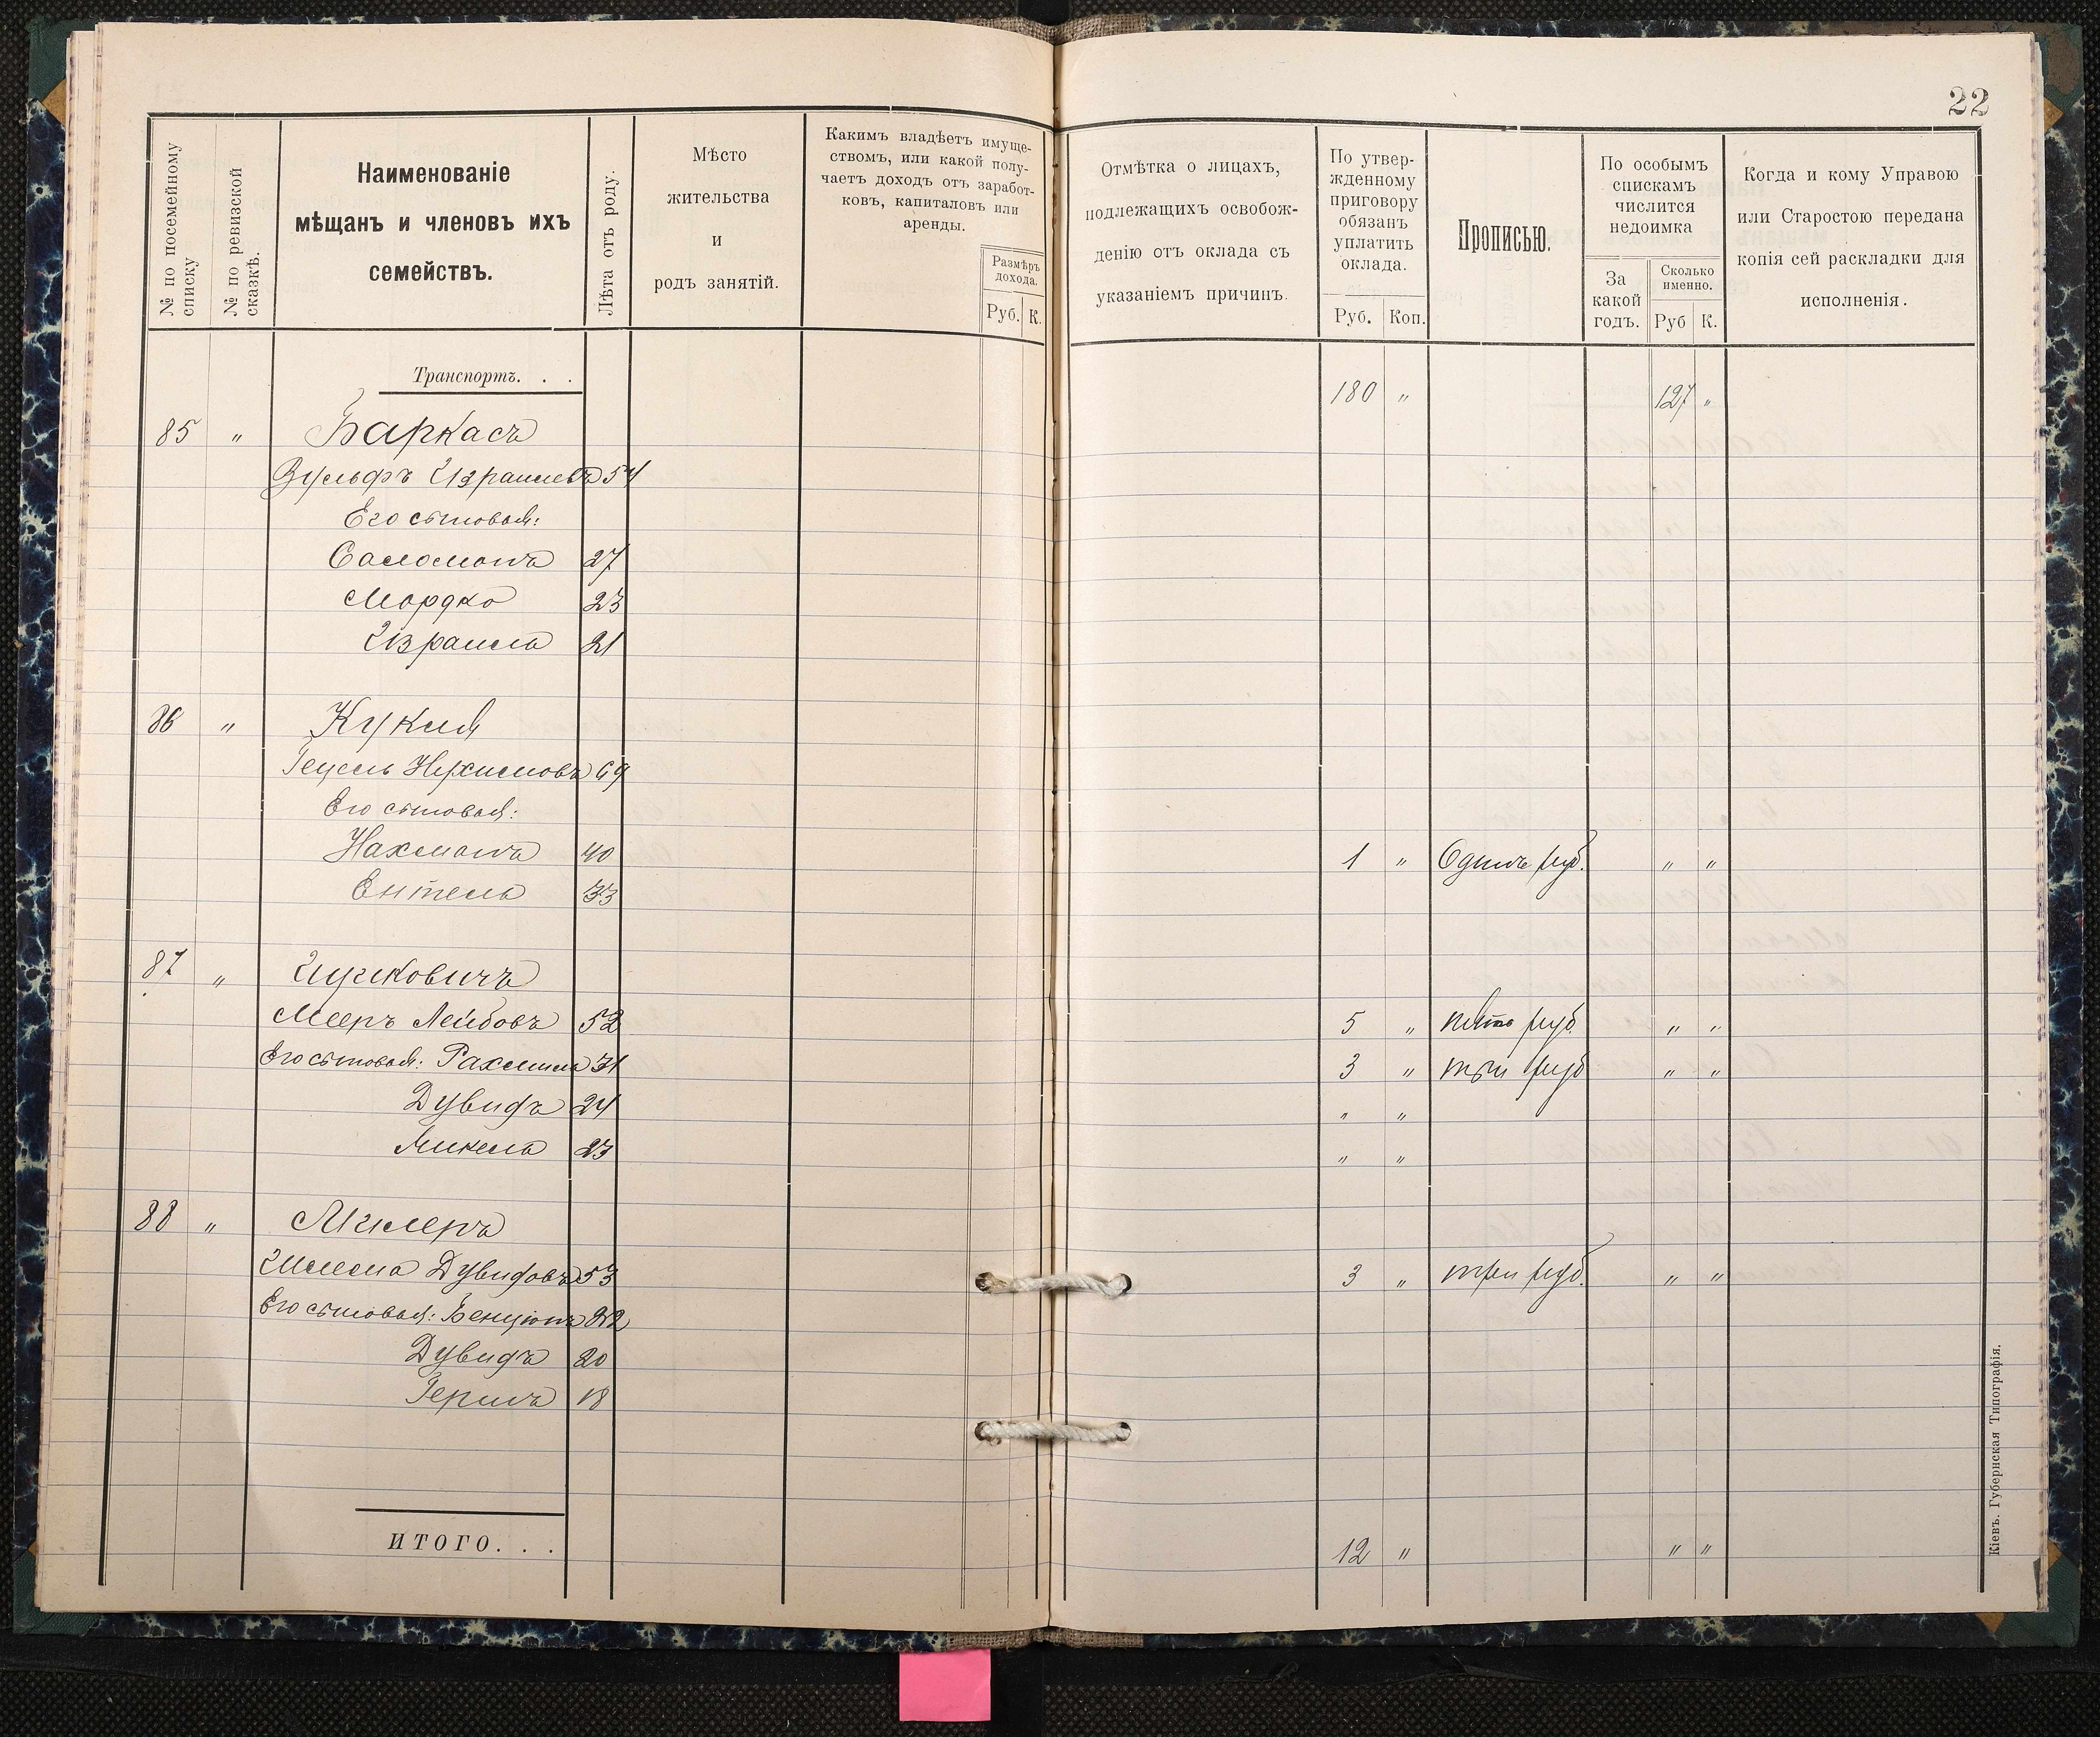 22
№ по посемейному списку
№ по ревизской сказкѣ.
Наименованіе
мѣщанъ и членовъ ихъ
семействъ.
Лѣта отъ роду.
Мѣсто
жительства
и
родъ занятій.
Какимъ владѣетъ имуще-
ствомъ, или какой полу-
чаетъ доходъ отъ заработ-
ковъ, капиталовъ или
аренды.
Размѣръ
дохода.
Руб. К.
Отмѣтка о лицахъ,
подлежащихъ освобож-
денію отъ оклада съ
указаніемъ причинъ.
По утвер-
жденному
приговору
обязанъ
уплатить
оклада.
Руб. Коп.
Прописью.
По особымъ
спискамъ
числится
недоимка
За
какой
годъ.
Сколько
именно.
Руб К.
Когда и кому Управою
или Старостою передана
копія сей раскладки для
исполненія.
Транспортъ. . . 180 " 127 "
85 " Баркасъ
Вульфъ Израилевъ 54
Его сыновья:
Саломонъ 27
Мордко 23
Израиль 21
86 " Кукля
Гецель Нухимовъ 69
Его сыновья:
Нахманъ 40 1 " Одинъ руб. " "
Ентель 33
87 " Ицковичъ
Мееръ Лейбовъ 52 5 " пять руб. " "
Его сыновья: Рахмиль 31 3 " три руб " "
Дувидъ 24 " "
Микель 23 " "
88 "
Шлема Дувидовъ 53 3 " три руб. " "
Его сыновья: Бенціонъ 22
Дувидъ 20
Гершъ 18
ИТОГО. . . 12 " " "
Кіевъ. Губернская Типографія.